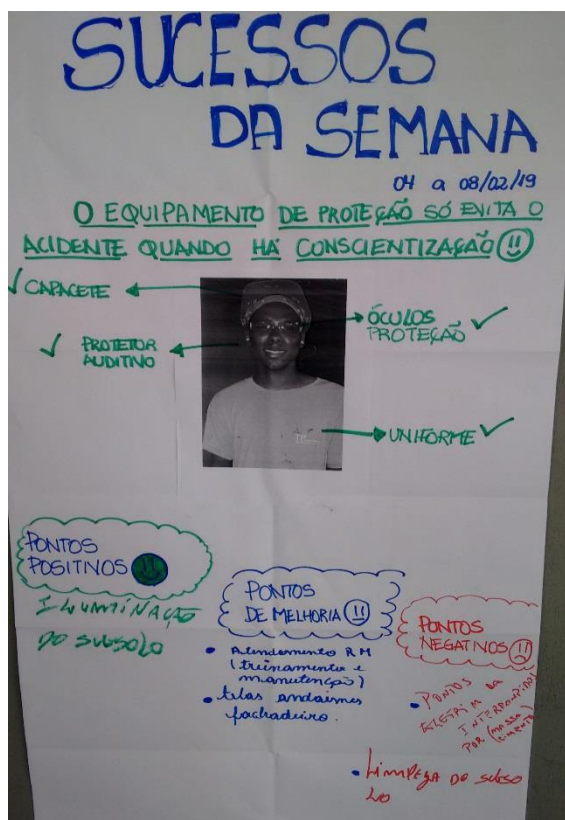 SUCESSOS
DA SEMANA
04 a 08/02/19
O EQUIPAMENTO DE PROTEÇÃO SÓ EVITA O
ACIDENTE QUANDO HÁ CONSCIENTIZAÇÃO
CAPACETE
ÓCULOS
PROTEÇÃO
PROTETOR
AUDITIVO
UNIFORME
PONTOS
POSITIVOS
ILUMINAÇÃO
DO SUBSOLO
PONTOS
DE MELHORIA
Atendimento RM
(treinamento e
manutenção)
telas andaimes
fachadeiro.
PONTOS
NEGATIVOS
PONTOS
DA
POR (massa
Limpeza do subso
lo